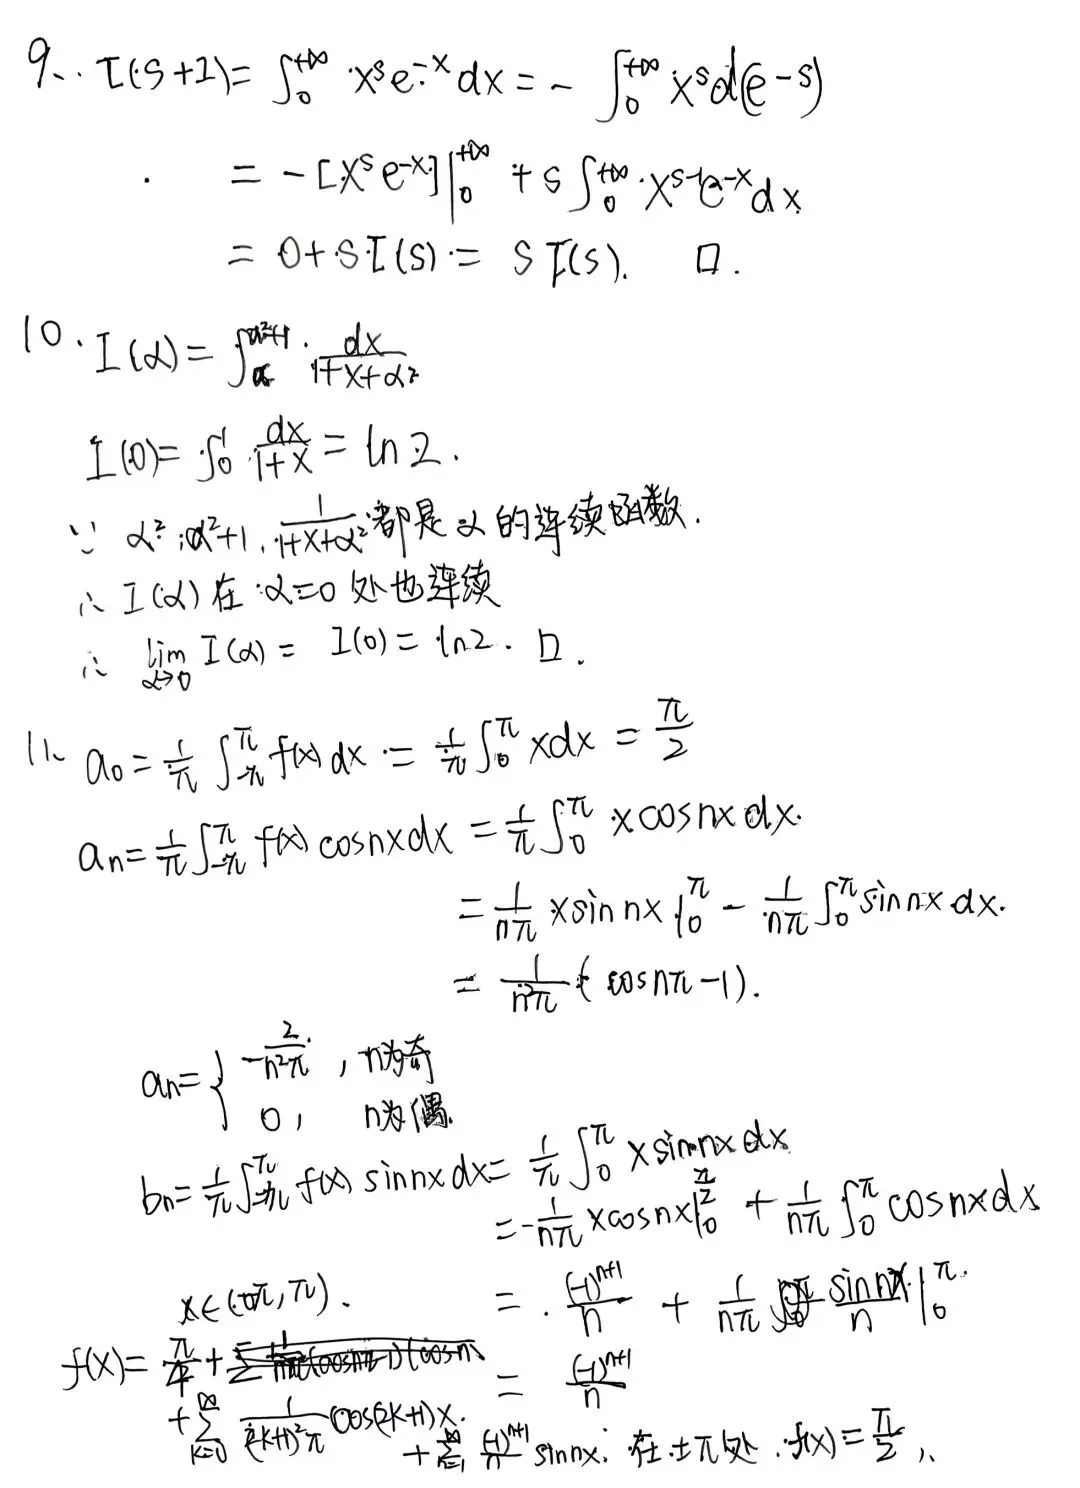 9. I(s+1)=∫₀^{+∞} x^s e^{-x} dx = - ∫₀^{+∞} x^s d(e^{-s})
= -[x^s e^{-x}]|₀^{+∞} + s∫₀^{+∞} x^{s-1} e^{-x} dx
= 0+s I(s) = s I(s). □.
10. I(α)=∫_α^{α²+1} dx/(1+x+α²)
I(0)=∫₀^1 dx/(1+x) = ln2.
∵ α², α²+1, 1/(1+x+α²) 都是α的连续函数.
∴ I(α)在α=0处也连续
∴ lim_{α→0} I(α) = I(0) = ln2. □.
11. a₀ = 1/π ∫_{-π}^{π} f(x)dx = 1/π ∫₀^π xdx = π/2
aₙ = 1/π ∫_{-π}^{π} f(x)cosnxdx = 1/π ∫₀^π xcosnxdx.
= 1/(nπ) xsinnx|₀^π - 1/(nπ) ∫₀^π sinnxdx.
= 1/(n²π) (cosnπ-1).
aₙ = { -2/(n²π), n为奇
0, n为偶.
bₙ = 1/π ∫_{-π}^{π} f(x)sinnxdx = 1/π ∫₀^π xsinnxdx
= -1/(nπ) xcosnx|₀^{π/2} + 1/(nπ) ∫₀^π cosnxdx
= (-1)^{n+1}/n + 1/(nπ) sinnx/n|₀^π.
x∈(-π,π).
= (-1)^{n+1}/n
f(x)= π/4 +
+∑_{k=0}^{∞} 1/((2k+1)²π) cos(2k+1)x.
+∑_{n=1}^{∞} (-1)^{n+1}/n sinnx. 在±π处 f(x)=π/2,